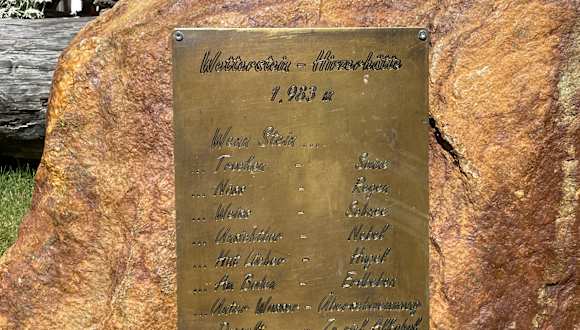 Wetterstein - Hirzerhütte
1.983 m
Wenn Stein ...
... Trocken - Sonne
... Nass - Regen
... Weiss - Schnee
... Unsichtbar - Nebel
... - Hagel
... - Erdbeben
... Unter Wasser - Überschwemmung